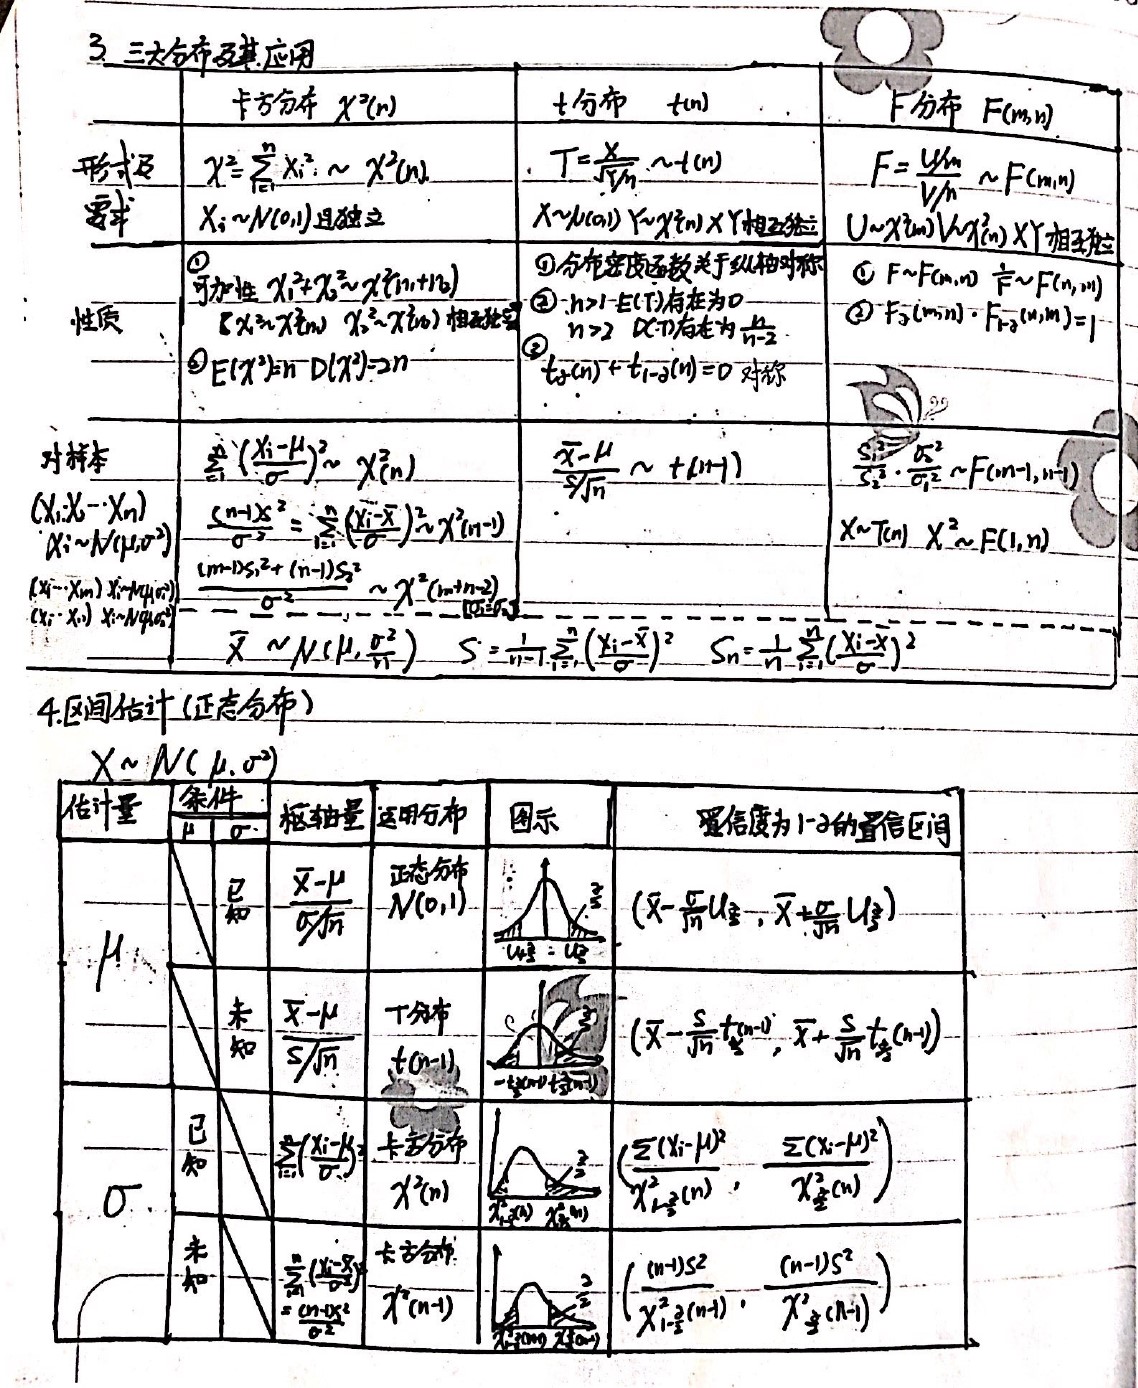 3. 三大分布及其应用
卡方分布 χ²(n)
t分布 t(n)
F分布 F(m,n)
形式及
要求
χ²=∑ᵢ₌₁ⁿ Xᵢ² ~ χ²(n)
Xᵢ~N(0,1)且独立
T=X/√(Y/n) ~t(n)
X~N(0,1) Y~χ²(n) X Y相互独立
F=(U/m)/(V/n) ~ F(m,n)
U~χ²(m) V~χ²(n) X Y 相互独立
性质
①
可加性 χ₁²+χ₂²~χ²(n₁+n₂)
χ₁²~χ²(n₁) χ₂²~χ²(n₂) 相互独立
② E(χ²)=n D(χ²)=2n
①分布密度函数关于纵轴对称
② n>1 E(T)存在为0
n>2 D(T)存在为 n/(n-2)
③
t∂(n)+t₁₋∂(n)=0 对称
① F~F(m,n) 1/F~F(n,m)
② F∂(m,n)·F₁₋∂(n,m)=1
对样本
(X₁X₂…Xn)
Xᵢ~N(μ,σ²)
(X₁…Xm) Xᵢ~N(μ,σ²)
(X₁…Xn) Xᵢ~N(μ,σ²)
∑ᵢ₌₁ⁿ((Xᵢ-μ)/σ)²~ χ²(n)
(n-1)S²/σ² = ∑ᵢ₌₁ⁿ((Xᵢ-X̄)/σ)²~χ²(n-1)
((m-1)S₁²+(n-1)S₂²)/σ² ~ χ²(m+n-2)
(X̄-μ)/(S/√n) ~ t(n-1)
S₁²/S₂²·σ₂²/σ₁² ~F(m-1,n-1)
X~T(n) X²~F(1,n)
X̄ ~N(μ,σ²/n) S=1/(n-1) ∑ᵢ₌₁ⁿ((Xᵢ-X̄)/σ)² Sn=1/n ∑ᵢ₌₁ⁿ((Xᵢ-X̄)/σ)²
4.区间估计(正态分布)
X~N(μ,σ²)
估计量 条件 枢轴量 运用分布 图示 置信度为1-∂的置信区间
μ σ
μ
已知
(X̄-μ)/(σ/√n)
正态分布
N(0,1)
∂/2
(X̄-σ/√n U∂/2 , X̄+σ/√n U∂/2)
未知
(X̄-μ)/(S/√n)
T分布
t(n-1)
∂/2
-t∂/2(n-1) t∂/2(n-1)
(X̄-S/√n t∂/2(n-1), X̄+S/√n t∂/2(n-1))
σ
已知
∑ᵢ₌₁ⁿ((Xᵢ-μ)/σ)²
卡方分布
χ²(n)
∂/2
χ²₁₋∂/2(n) χ²∂/2(n)
(∑(Xᵢ-μ)²/χ²₁₋∂/2(n) , ∑(Xᵢ-μ)²/χ²∂/2(n))
未知
∑ᵢ₌₁ⁿ((Xᵢ-X̄)/σ)²
=(n-1)S²/σ²
卡方分布
χ²(n-1)
∂/2
χ²₁₋∂/2(n-1) χ²∂/2(n-1)
((n-1)S²/χ²₁₋∂/2(n-1) , (n-1)S²/χ²∂/2(n-1))